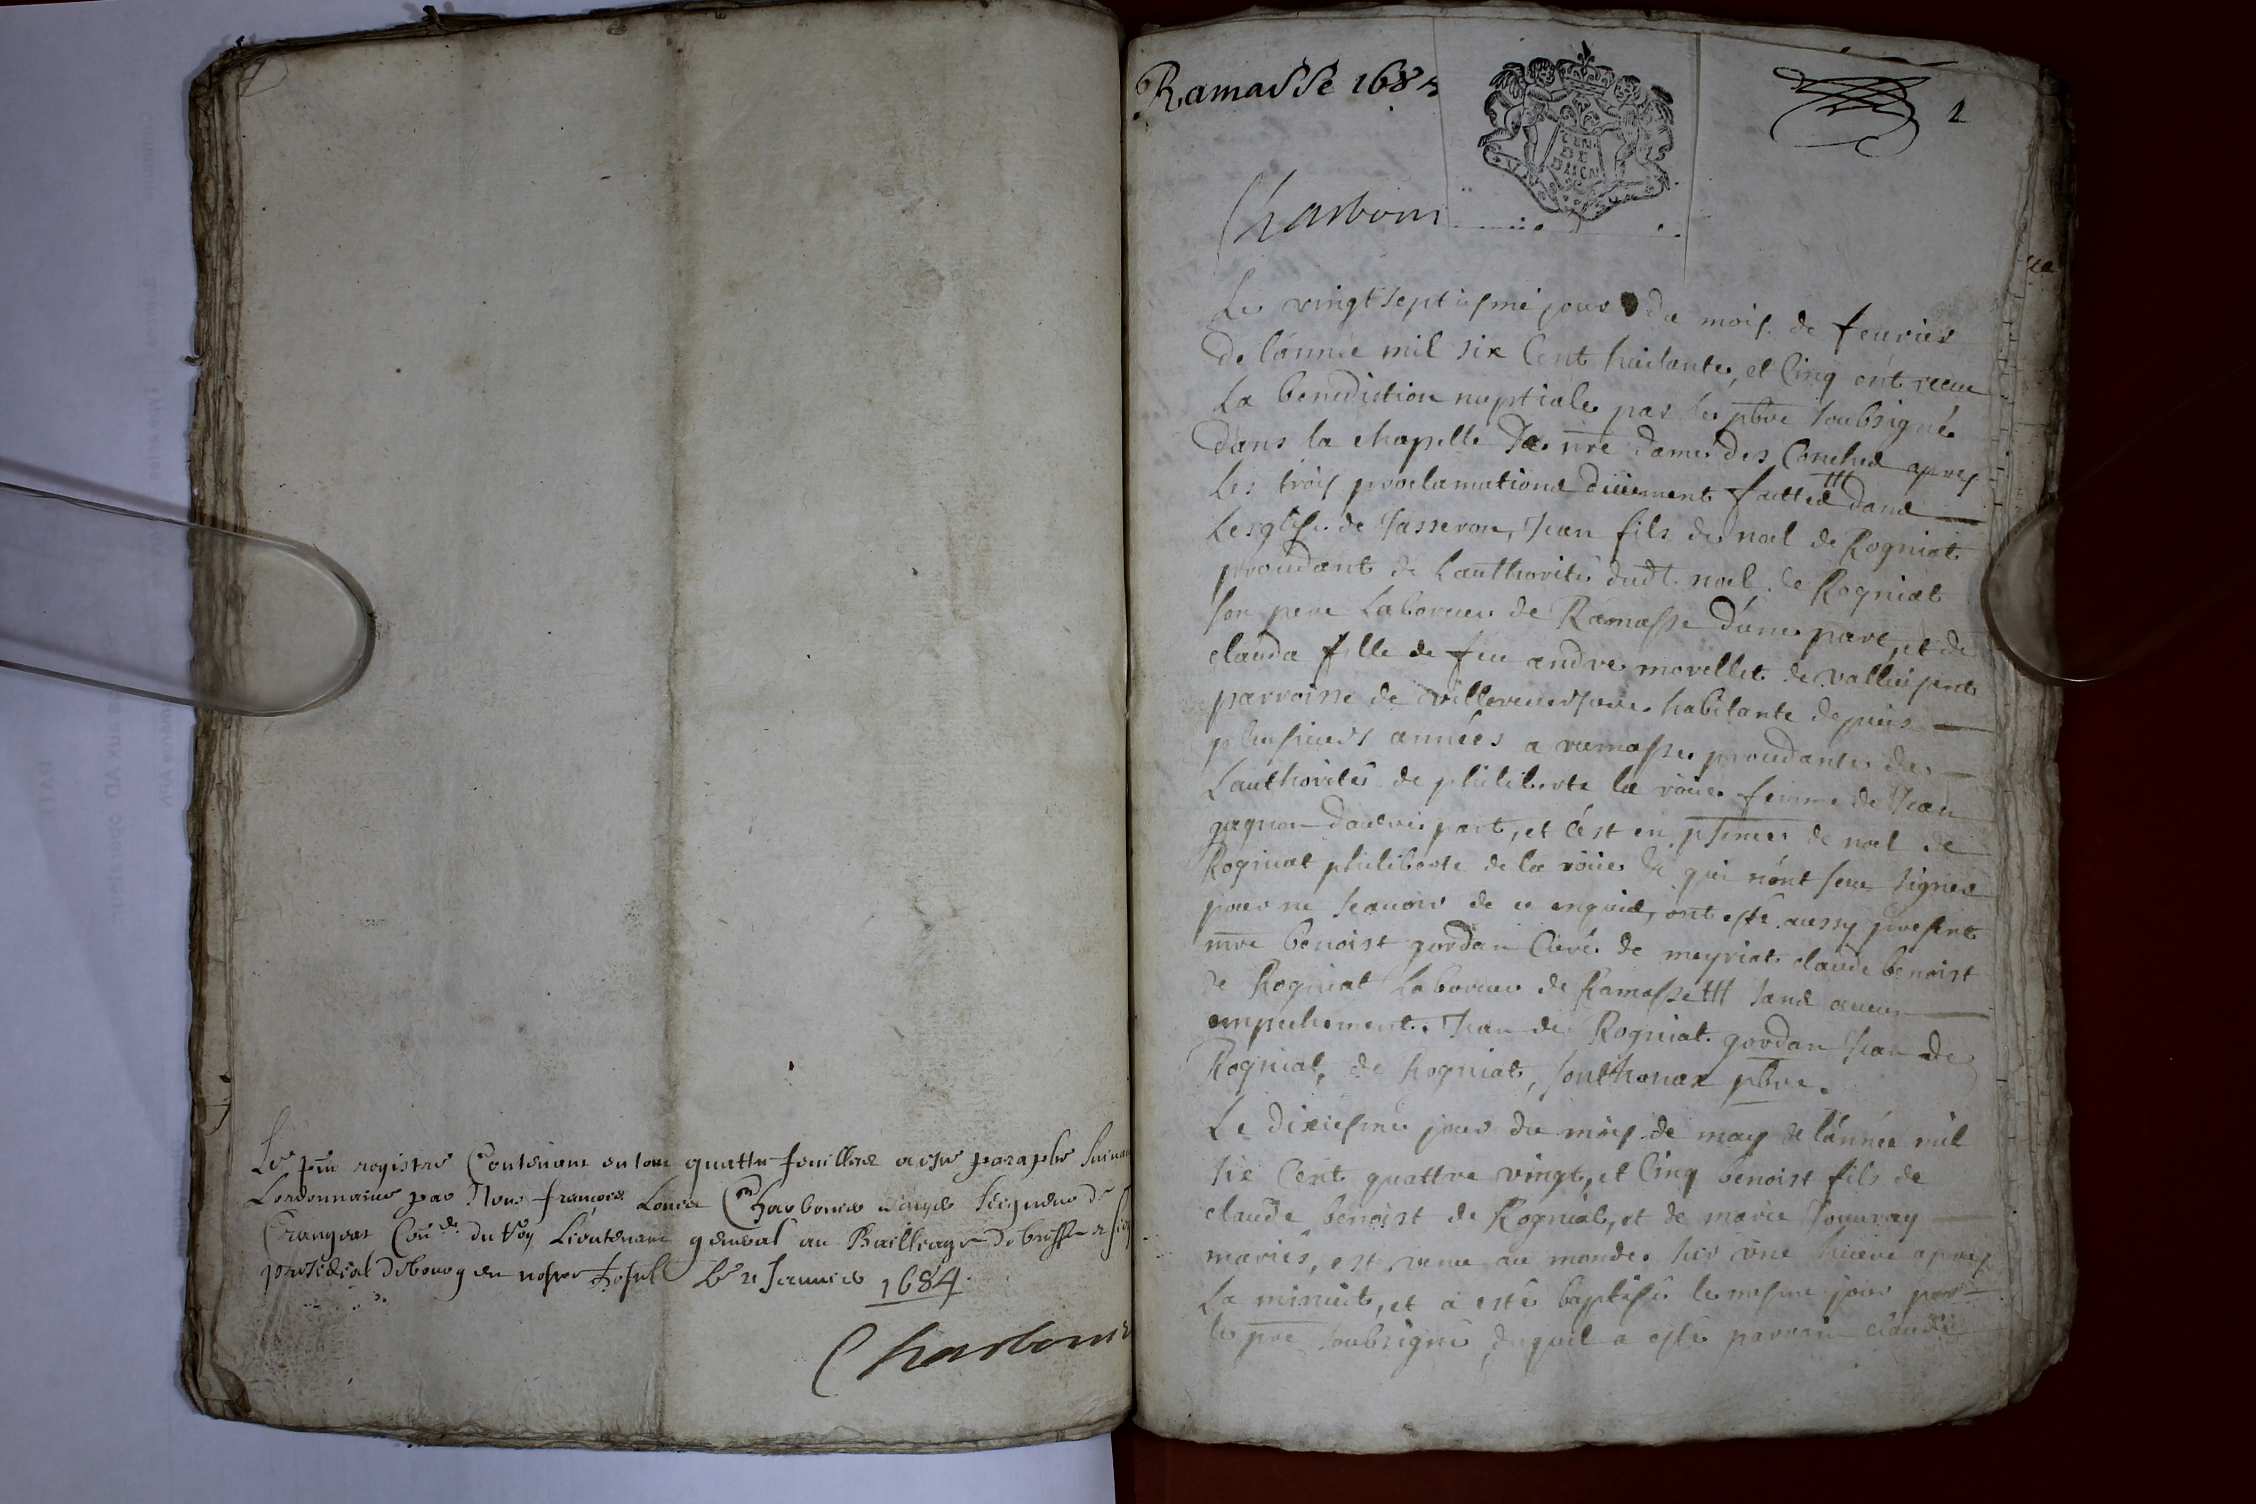 Le pnt registre Contenant en tout quattre feuilletz a esté paraphé suivant
Lordonnance par Nous francois Louis Charbonnier Seigneur de
Crangeat Con.er du Roy Lieutenant general au Bailliage de bresse et siege
presidial de bourg en nostre hostel Le 2 Janvier 1684
Charbonnier
Ramasse 1685
GEN DE
2
Charbonnier
Le vingt septiesme jour du mois de feurier
de lánnée mil six Cent huitante, et Cinq ont receu
La benediction nuptiale par le pbre soubsigné
dans la chapelle de nre dame des Conches apres
les trois proclamations düement faittes dans
Lesglise de Jasseron, Jean fils de noel de Rogniat
procedant de Lauthorité dudt noel de Rogniat
son pere Laboreur de Ramasse d'une part, et de
clauda fille de feu andre morellet de
parroisse de villereuersure habitante depuis
plusieurs années a ramasse procedante de
Lauthorité de philiberte la roüe femme de Jean
gagnon dautre part, et cést en pñce de noel de
Rogniat philiberte de la roüe qui nónt signé
pour ne scauoir de ce enquis, ont esté aussy present
mre benoist gordan Curé de meyriat claude benoist
de Rogniat Laboreur de Ramasse sans aucun
empechement. Jean de Rogniat. gordan Jean de
Rogniat, de Rogniat, sonthonax pbre.
Le dixiesme jour du mois de may de lánnée mil
six Cent quattre vingt, et Cinq benoist fils de
claude benoist de Rogniat, et de marie
mariés, est venu au monde hier une heure apres
La minuit, et a esté baptisé le mesme jour par
le pbre soubsigné, duquel a esté parrain claude